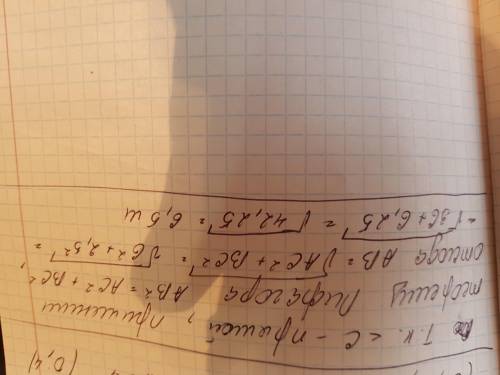 (0,4)
Т.к. <C - прямой, применим
теорему Пифагора AB² = AC² + BC²,
откуда AB = √AC² + BC² = √6² + 2,5² =
= √36 + 6,25 = √42,25 = 6,5 м